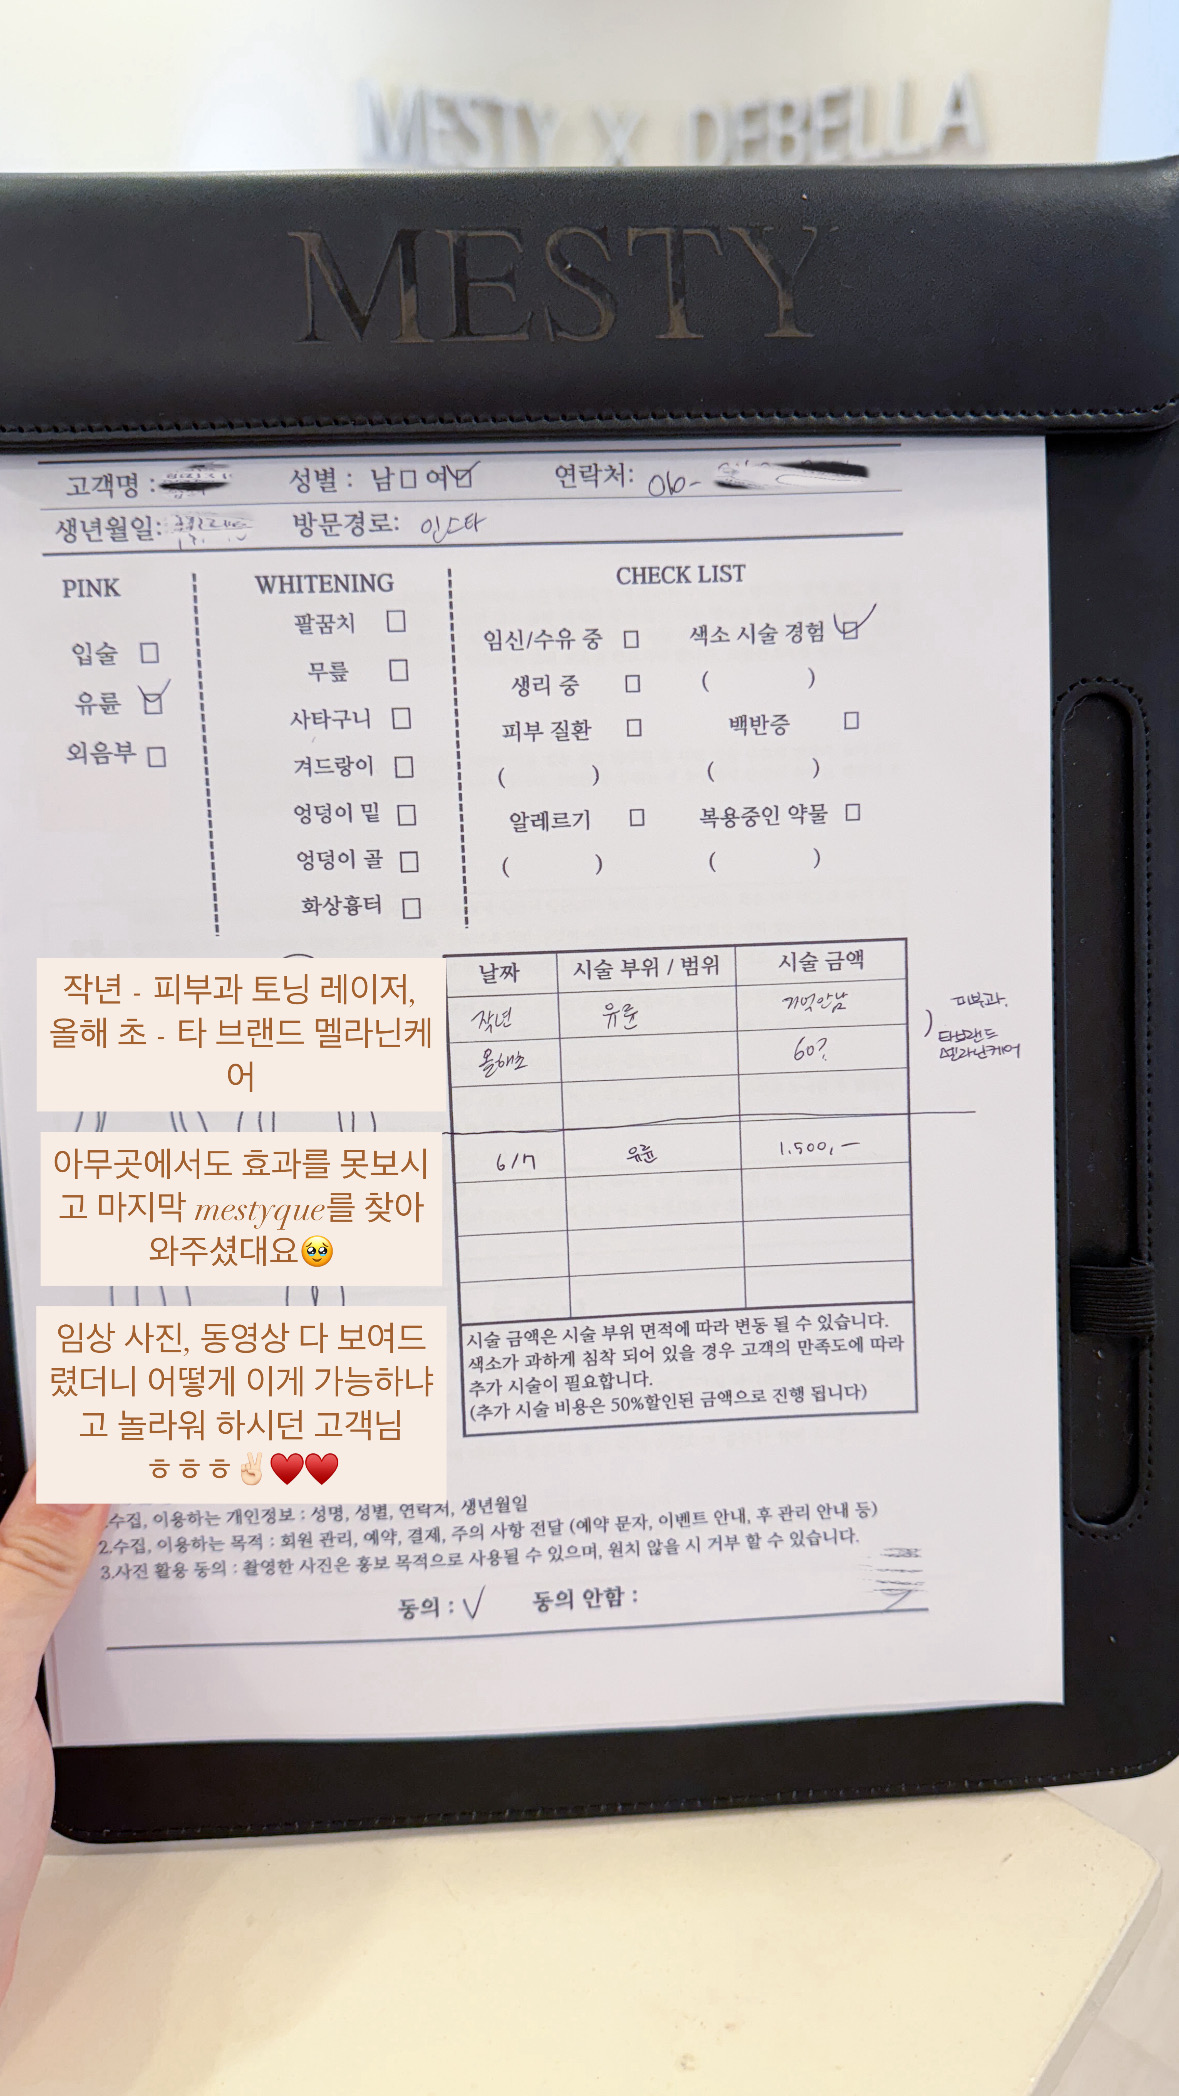 MESTY X DEBELLA
MESTY
고객명 :
성별 : 남 □ 여 ☑
연락처: 010-
생년월일:
방문경로: 인스타
PINK
입술 □
유륜 ☑
외음부 □
WHITENING
팔꿈치 □
무릎 □
사타구니 □
겨드랑이 □
엉덩이 밑 □
엉덩이 골 □
화상흉터 □
CHECK LIST
임신/수유 중 □ 색소 시술 경험 ☑
생리 중 □ ( )
피부 질환 □ 백반증 □
( ) ( )
알레르기 □ 복용중인 약물 □
( ) ( )
작년 - 피부과 토닝 레이저,
올해 초 - 타 브랜드 멜라닌케
어
아무곳에서도 효과를 못보시
고 마지막 mestyque를 찾아
와주셨대요🥹
임상 사진, 동영상 다 보여드
렸더니 어떻게 이게 가능하냐
고 놀라워 하시던 고객님
ㅎㅎㅎ✌🏻♥️♥️
날짜 시술 부위 / 범위 시술 금액
작년 유륜 기억안남
올해초 60?
피부과.
타브랜드
멜라닌케어
6/7 유륜 1.500,-
시술 금액은 시술 부위 면적에 따라 변동 될 수 있습니다.
색소가 과하게 침착 되어 있을 경우 고객의 만족도에 따라
추가 시술이 필요합니다.
(추가 시술 비용은 50%할인된 금액으로 진행 됩니다)
.수집, 이용하는 개인정보 : 성명, 성별, 연락처, 생년월일
2.수집, 이용하는 목적 : 회원 관리, 예약, 결제, 주의 사항 전달 (예약 문자, 이벤트 안내, 후 관리 안내 등)
3.사진 활용 동의 : 촬영한 사진은 홍보 목적으로 사용될 수 있으며, 원치 않을 시 거부 할 수 있습니다.
동의 : √ 동의 안함 :